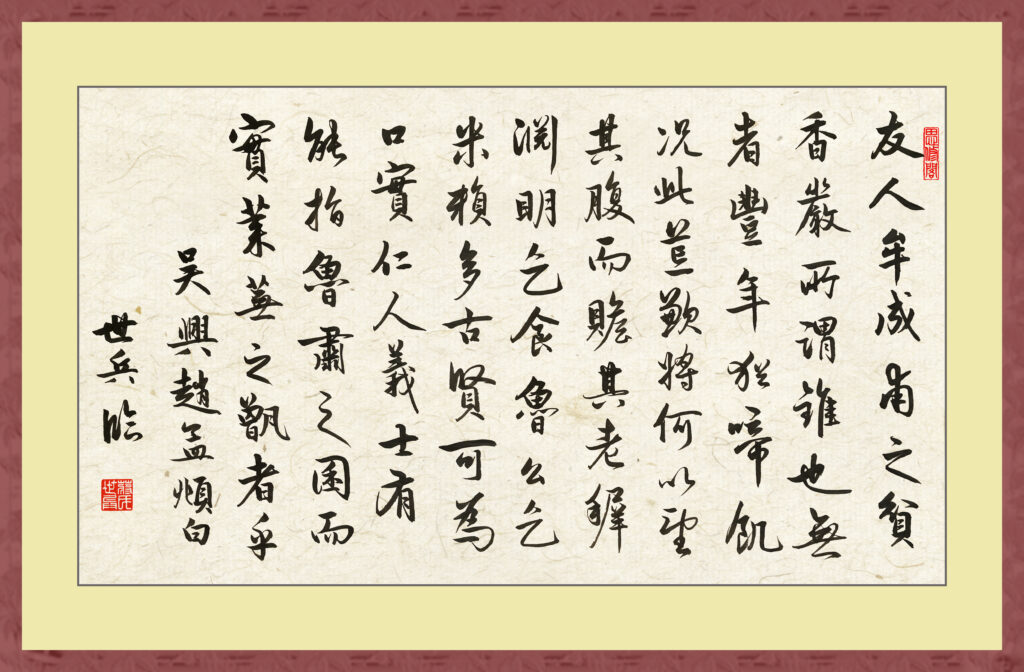 友人牟成甫之貧
香嚴所謂錐也無
者豐年猶啼飢
況此荒歉將何以望
其腹而贍其老穉
淵明乞食魯公乞
米賴多古賢可為
口實仁人義士有
能指魯肅之囷而
實萊蕪之甑者乎
吳興趙孟頫白
世兵臨